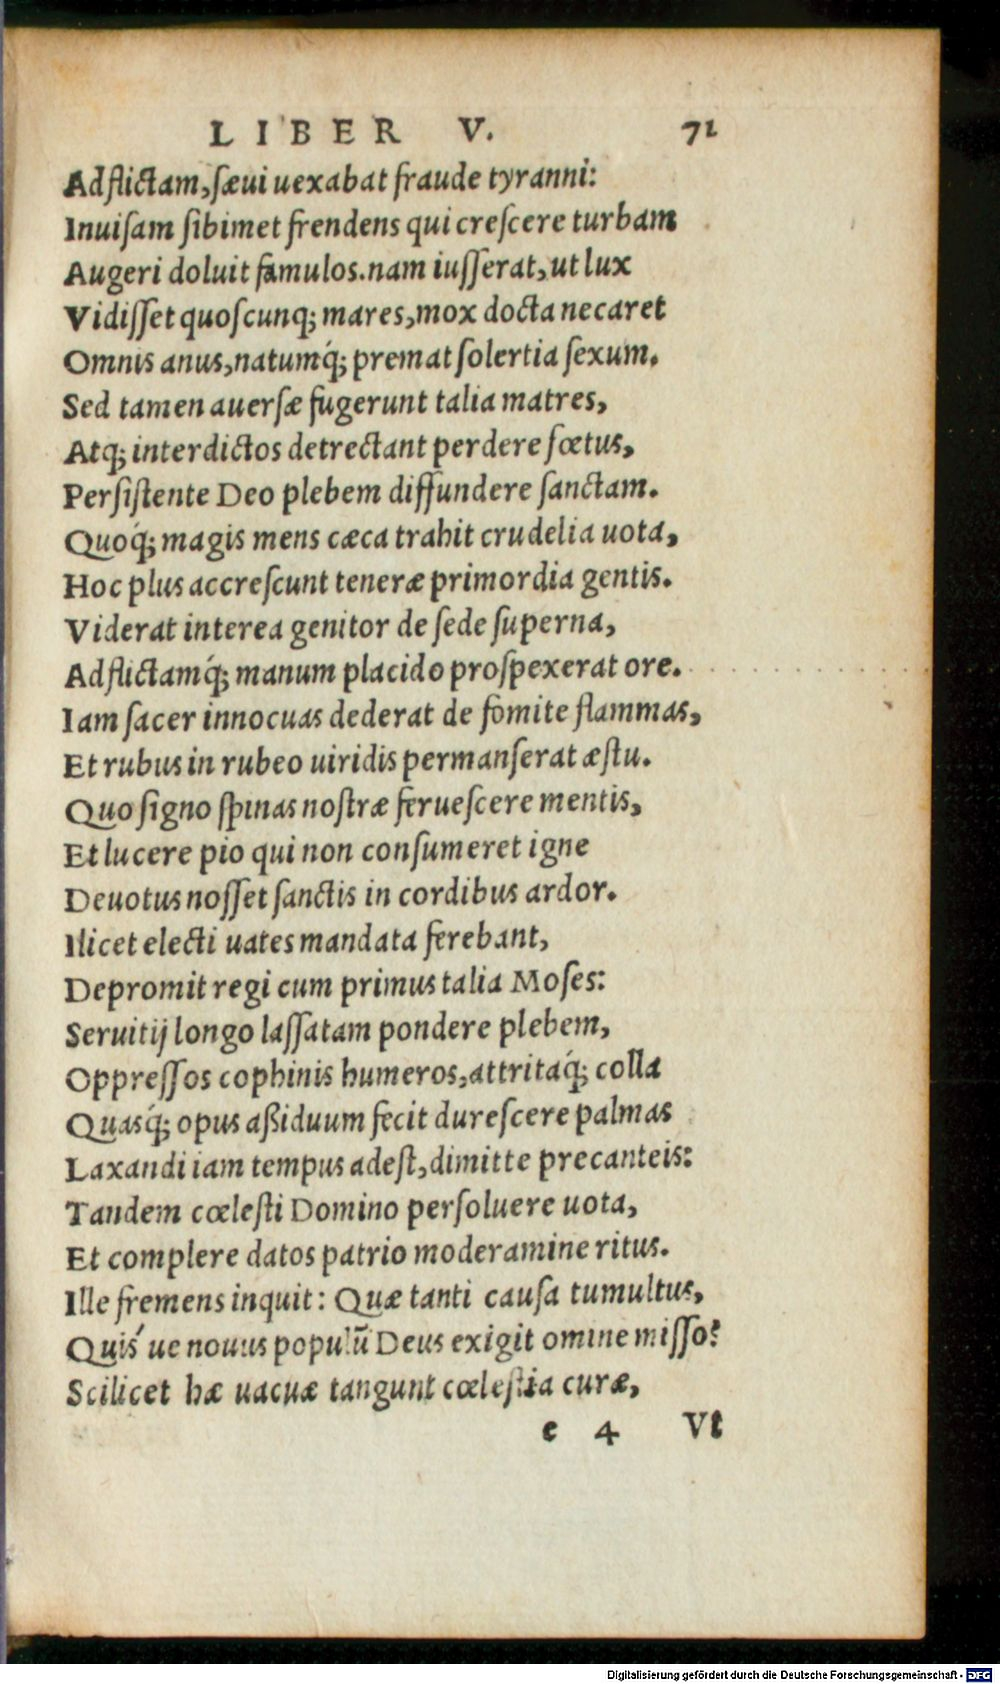 LIBER V. 71
Adflictam, sæui uexabat fraude tyranni:
Inuisam sibimet frendens qui crescere turbam
Augeri doluit famulos. nam iusserat, ut lux
Vidisset quoscunq; mares, mox docta necaret
Omnis anus, natumq́; premat solertia sexum.
Sed tamen auersæ fugerunt talia matres,
Atq; interdictos detrectant perdere fœtus,
Persistente Deo plebem diffundere sanctam.
Quoq́; magis mens cæca trahit crudelia uota,
Hoc plus accrescunt teneræ primordia gentis.
Viderat interea genitor de sede superna,
Adflictamq́; manum placido prospexerat ore.
Iam sacer innocuas dederat de fomite flammas,
Et rubus in rubeo uiridis permanserat æstu.
Quo signo spinas nostræ feruescere mentis,
Et lucere pio qui non consumeret igne
Deuotus nosset sanctis in cordibus ardor.
Ilicet electi uates mandata ferebant,
Depromit regi cum primus talia Moses:
Seruitij longo lassatam pondere plebem,
Oppressos cophinis humeros, attritaq́; colla
Quasq́; opus aßiduum fecit durescere palmas
Laxandi iam tempus adest, dimitte precanteis:
Tandem cœlesti Domino persoluere uota,
Et complere datos patrio moderamine ritus.
Ille fremens inquit: Quæ tanti causa tumultus,
Quis´ue nouus populũ Deus exigit omine misso?
Scilicet hæ uacuæ tangunt cœlestia curæ,
e 4 Vt
Digitalisierung gefördert durch die Deutsche Forschungsgemeinschaft - DFG